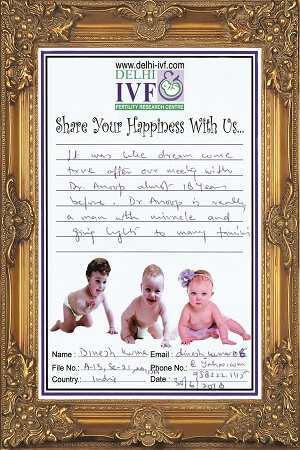 www.delhi-ivf.com
DELHI
IVF
FERTILITY RESEARCH CENTRE
Share Your Happiness With Us...
It was like dream come
true after our meeting with
Dr. Anoop almost 18 Years
before. Dr. Anoop is really
a man with miracle and
giving lights to many families
Name : Dinesh Kumar Email : dinesh kumar
File No.: A-15, Se-21, @ Yahoo.com
Phone No.:
Country: India Date : 30/6/2018